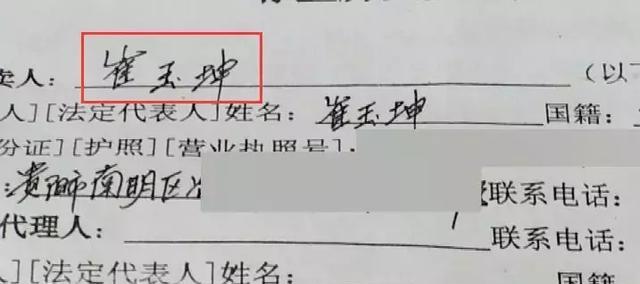 卖人：崔玉坤（以下
人][法定代表人]姓名：崔玉坤国籍：
份证][护照][营业执照号]：
：贵阳市南明区 联系电话：
代理人： 联系电话：
人][法定代表人]姓名：